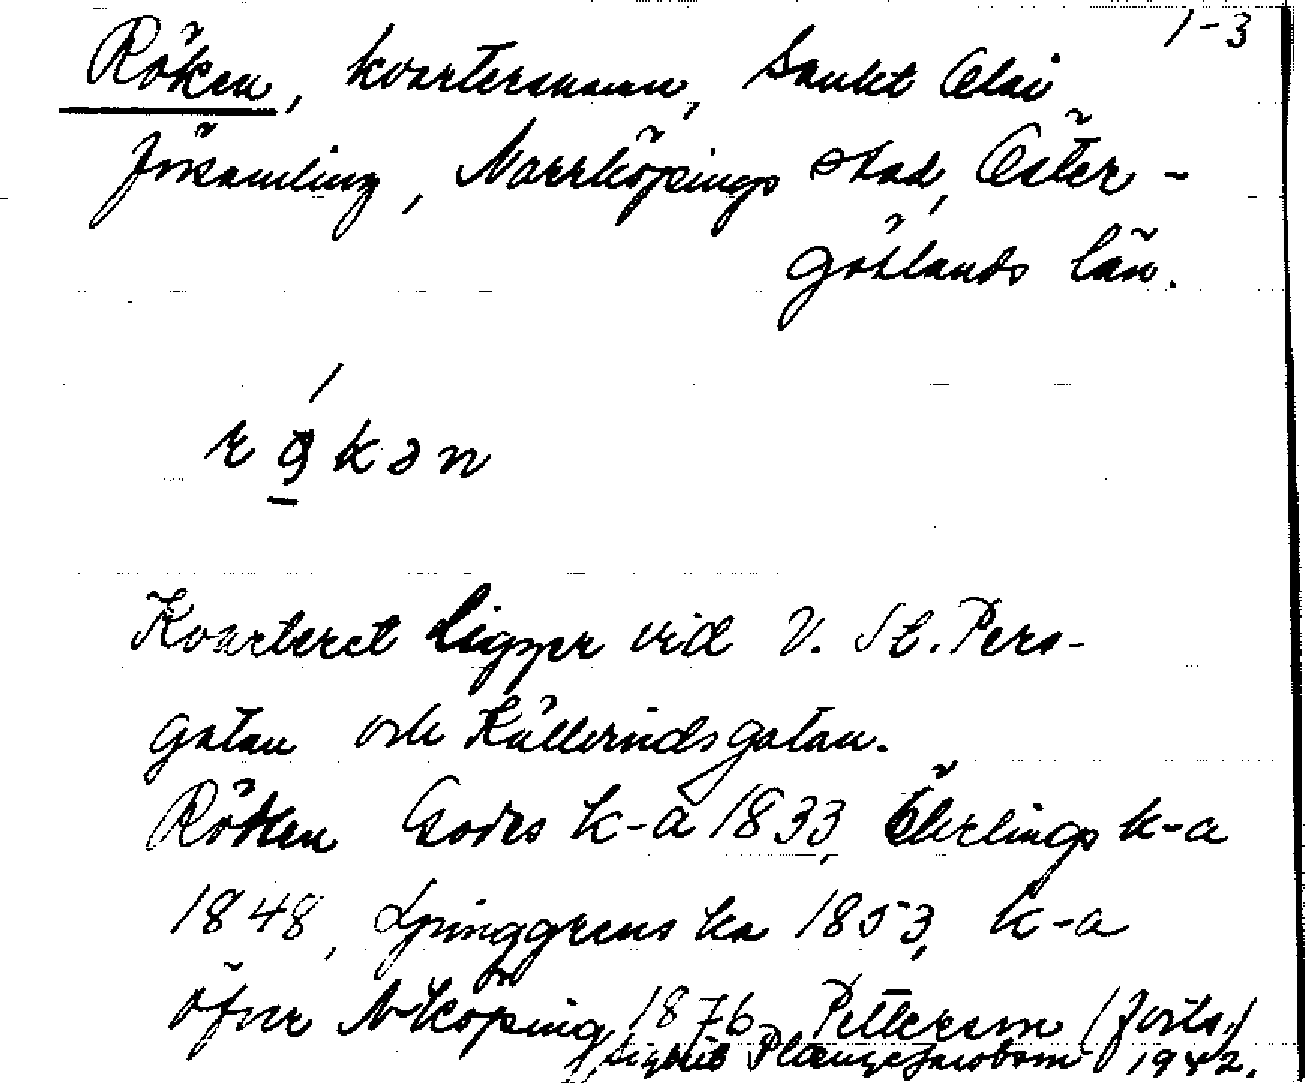 1-3
Röken, kvartersnamn, Sankt Olai
församling, Norrköpings stad, Öster-
götlands län.
røkən
Kvarteret ligger vid V. St. Pers-
gatan och Källvindsgatan.
Röken k-a 1833, Öhrlings k-a
1848, Ljunggrens ka 1853, k-a
öfver N-köping 1876 Petterson (forts.)
1942.